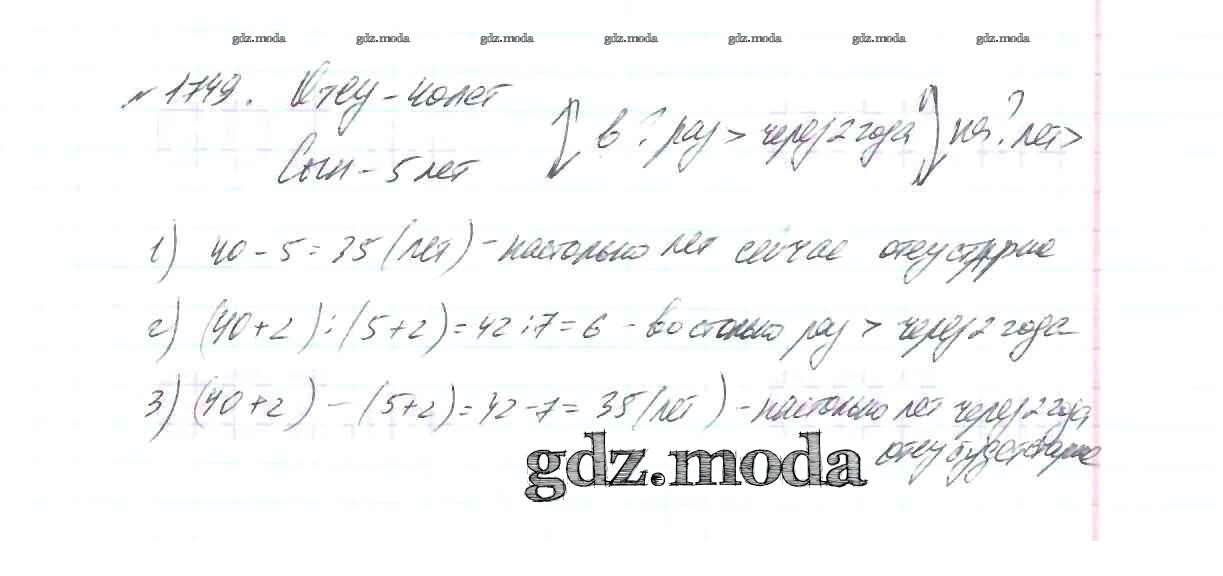 gdz.moda gdz.moda gdz.moda gdz.moda gdz.moda gdz.moda gdz.moda
№1749. Отец - 40 лет
в ? раз > через 2 года на ? лет >
Сын - 5 лет
1) 40 - 5 = 35 (лет) - настолько лет сейчас отец старше
2) (40+2) : (5+2) = 42 : 7 = 6 - во столько раз > через 2 года
3) (40+2) - (5+2) = 42 - 7 = 35 (лет) - настолько лет через 2 года
отец будет старше
gdz.moda